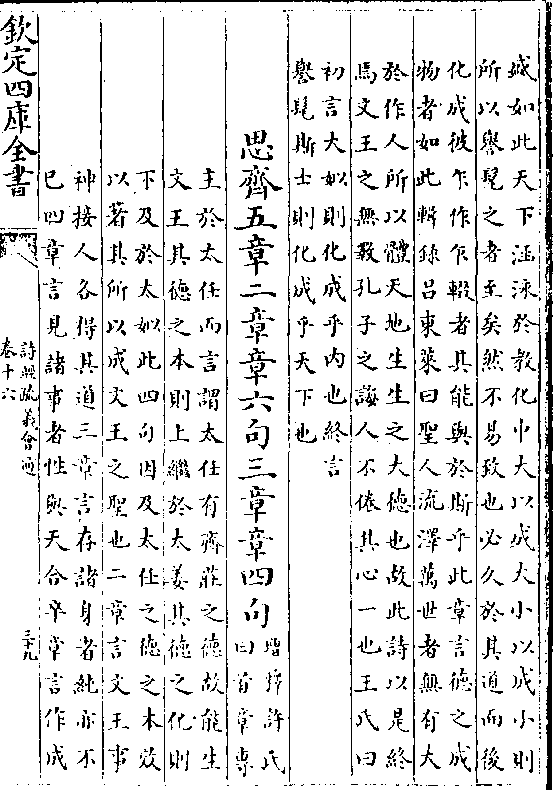 誠如此天下涵泳於教化中大以成大小以成小則
所以譽髦之者至矣然不易致也必久於其道而後
化成彼乍作乍輟者其能與於斯乎此章言德之成
物者如此輯錄呂東萊曰聖人流澤萬世者無有大
於作人所以體天地生生之大德也故此詩以是終
焉文王之無斁孔子之誨人不倦其心一也王氏曰
初言大姒則化成乎内也終言
譽髦斯士則化成乎天下也
思齊五章二章章六句三章章四句
增釋許氏
曰首章專
主於太任而言謂太任有齊莊之德故能生
文王其德之本則上繼於太姜其德之化則
下及於太姒此四句因及太任之德之本效
以著其所以成文王之聖也二章言文王事
神接人各得其道三章言存諸身者純亦不
已四章言見諸事者性與天合卒章言作成
欽定四庫全書
詩經疏義會通
卷十六
三十九